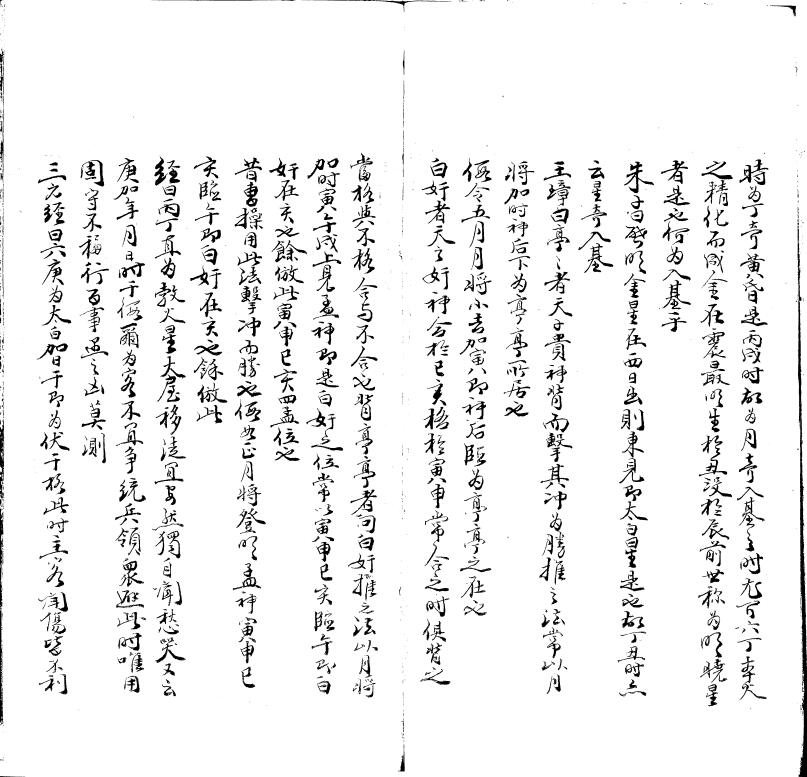 時為丁奇黃昏是丙戌時故為月奇入墓之時尤百六丁本火
之精化而成金在震最明生於丑沒於辰前世称為明曉星
者是也何為入墓乎
朱子曰啓明金星在西日出則東見即太白星是也故丁丑時亦
云星奇入墓
王璋曰亭々者天子貴神背而擊其冲為勝推之法常以月
將加時神后下為亭亭所居也
假令五月月將小吉加寅八即神后臨為亭亭之在也
白奸者天之奸神合於巳亥格於寅申常合之時俱背之
當格與不格合与不合也背亭亭者向白奸推之法以月將
加時寅午戌上見孟神即是白奸之位常以寅申巳亥臨午即白
奸在亥也餘倣此寅申巳亥四孟位也
昔曹操用此法擊冲而勝也假如正月將登明孟神寅申巳
亥臨午即白奸在亥也餘倣此
經曰丙丁真為勃火星大屋移徒宜安然獨自聞愁哭又云
庚加年月日時干假爾為客不宜争統兵領衆逃此時唯用
固守不福行百事遇之凶莫測
三元經曰六庚為太白加日干即為伏干格此時主客闘傷皆不利